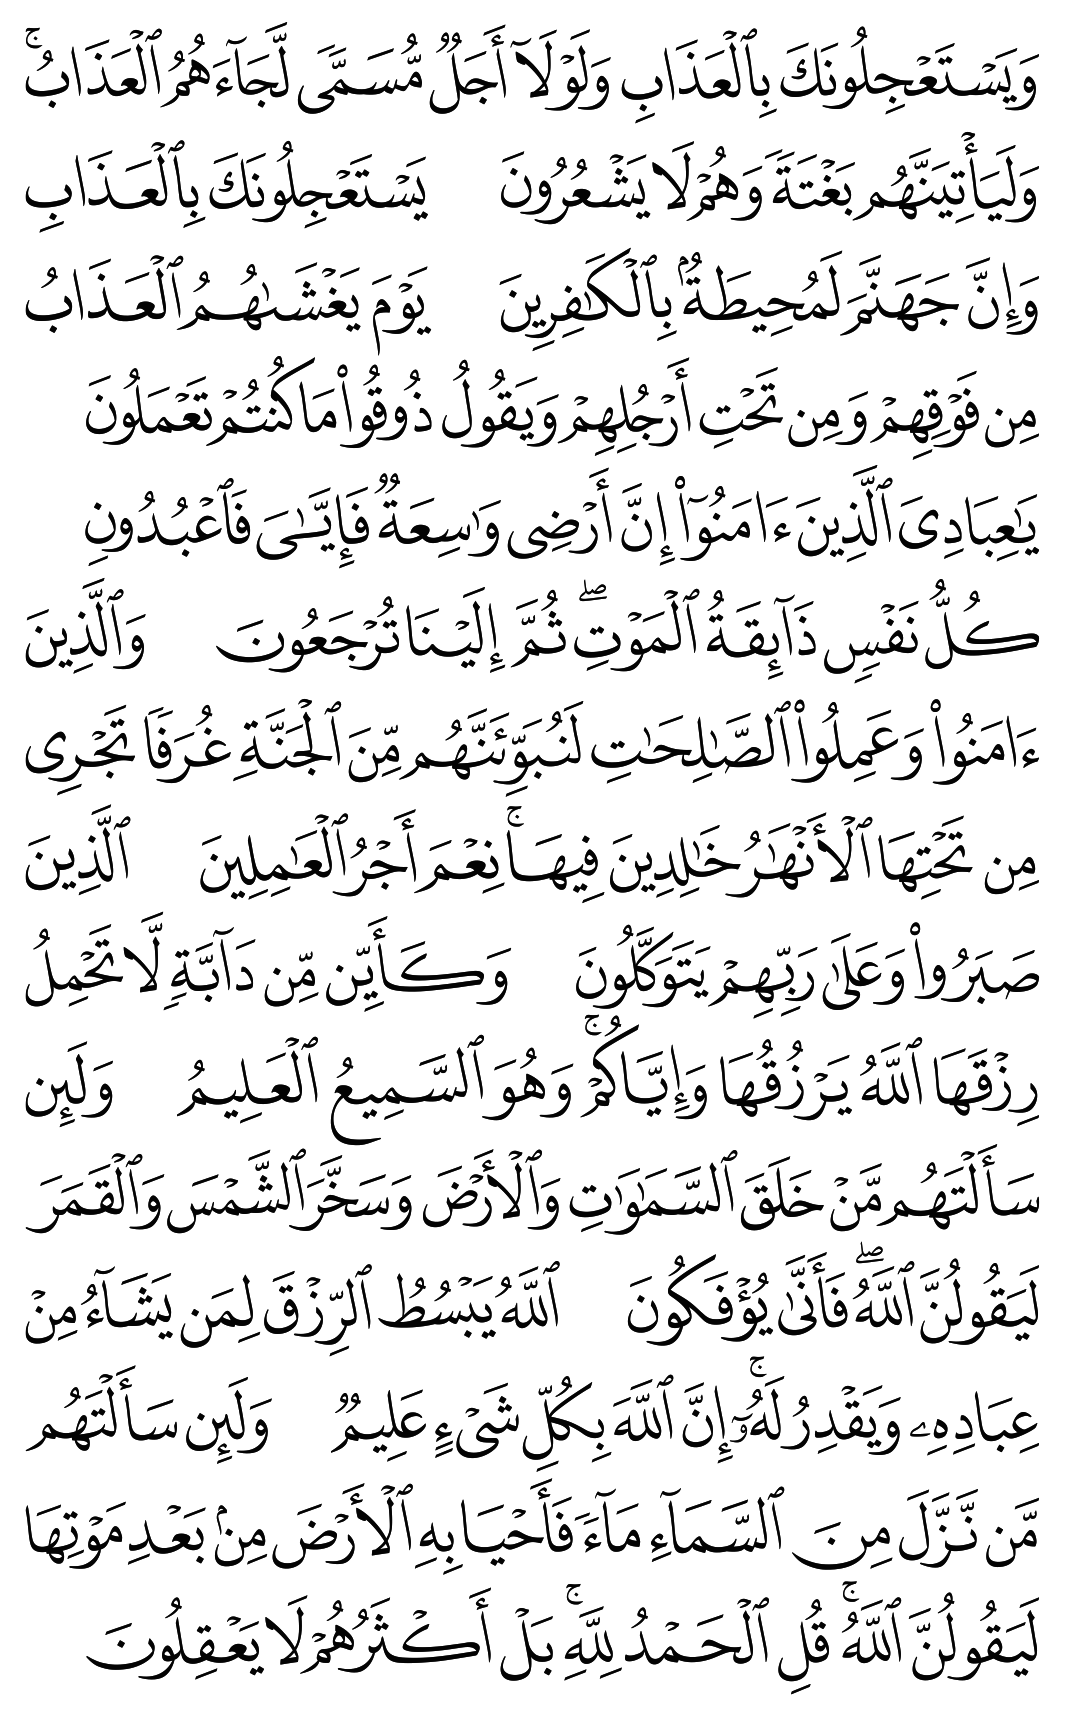 وَيَسۡتَعۡجِلُونَكَ بِٱلۡعَذَابِ وَلَوۡلَآ أَجَلٞ مُّسَمّٗى لَّجَآءَهُمُ ٱلۡعَذَابُۚ
وَلَيَأۡتِيَنَّهُم بَغۡتَةٗ وَهُمۡ لَا يَشۡعُرُونَ يَسۡتَعۡجِلُونَكَ بِٱلۡعَذَابِ
وَإِنَّ جَهَنَّمَ لَمُحِيطَةُۢ بِٱلۡكَٰفِرِينَ يَوۡمَ يَغۡشَىٰهُمُ ٱلۡعَذَابُ
مِن فَوۡقِهِمۡ وَمِن تَحۡتِ أَرۡجُلِهِمۡ وَيَقُولُ ذُوقُواْ مَا كُنتُمۡ تَعۡمَلُونَ
يَٰعِبَادِيَ ٱلَّذِينَ ءَامَنُوٓاْ إِنَّ أَرۡضِي وَٰسِعَةٞ فَإِيَّٰيَ فَٱعۡبُدُونِ
كُلُّ نَفۡسٖ ذَآئِقَةُ ٱلۡمَوۡتِۖ ثُمَّ إِلَيۡنَا تُرۡجَعُونَ وَٱلَّذِينَ
ءَامَنُواْ وَعَمِلُواْ ٱلصَّٰلِحَٰتِ لَنُبَوِّئَنَّهُم مِّنَ ٱلۡجَنَّةِ غُرَفٗا تَجۡرِي
مِن تَحۡتِهَا ٱلۡأَنۡهَٰرُ خَٰلِدِينَ فِيهَاۚ نِعۡمَ أَجۡرُ ٱلۡعَٰمِلِينَ ٱلَّذِينَ
صَبَرُواْ وَعَلَىٰ رَبِّهِمۡ يَتَوَكَّلُونَ وَكَأَيِّن مِّن دَآبَّةٖ لَّا تَحۡمِلُ
رِزۡقَهَا ٱللَّهُ يَرۡزُقُهَا وَإِيَّاكُمۡۚ وَهُوَ ٱلسَّمِيعُ ٱلۡعَلِيمُ وَلَئِن
سَأَلۡتَهُم مَّنۡ خَلَقَ ٱلسَّمَٰوَٰتِ وَٱلۡأَرۡضَ وَسَخَّرَ ٱلشَّمۡسَ وَٱلۡقَمَرَ
لَيَقُولُنَّ ٱللَّهُۖ فَأَنَّىٰ يُؤۡفَكُونَ ٱللَّهُ يَبۡسُطُ ٱلرِّزۡقَ لِمَن يَشَآءُ مِنۡ
عِبَادِهِۦ وَيَقۡدِرُ لَهُۥٓۚ إِنَّ ٱللَّهَ بِكُلِّ شَيۡءٍ عَلِيمٞ وَلَئِن سَأَلۡتَهُم
مَّن نَّزَّلَ مِنَ ٱلسَّمَآءِ مَآءٗ فَأَحۡيَا بِهِ ٱلۡأَرۡضَ مِنۢ بَعۡدِ مَوۡتِهَا
لَيَقُولُنَّ ٱللَّهُۚ قُلِ ٱلۡحَمۡدُ لِلَّهِۚ بَلۡ أَكۡثَرُهُمۡ لَا يَعۡقِلُونَ